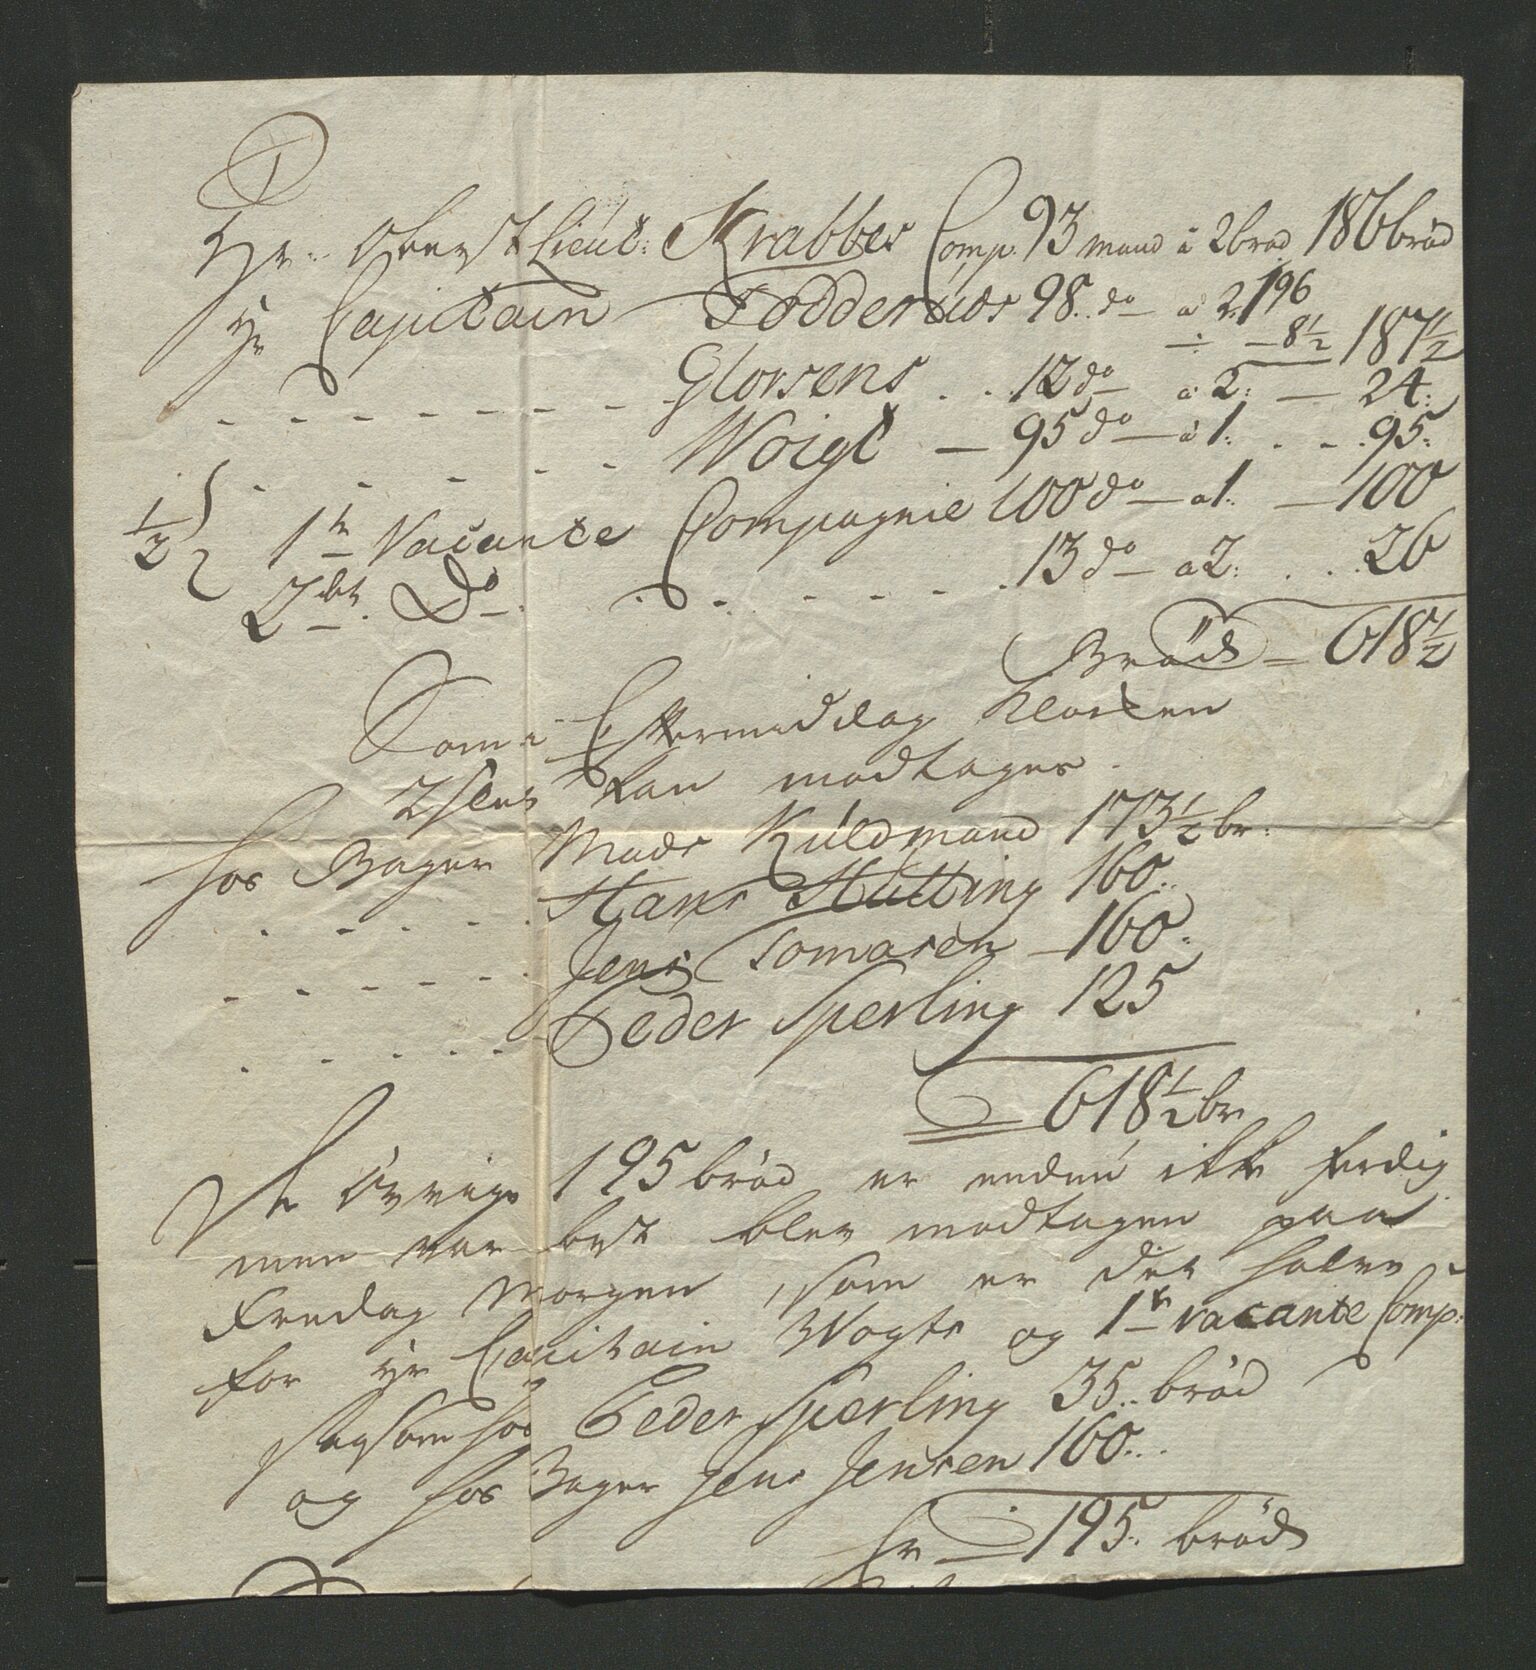 Hr. Oberst Lieut: Krabbes Comp. 93 mand à 2 brød 186 brød
Hr Capitain Todderuds 98. do à 2. 196
÷ 8½ 187½
Glorsens . . 12 do à 2: — 24:
Woigt — 95 do — à 1: . - . 95:
½ { 1te Vacante Compagnie 100 do — a 1. — 100
2den. Do . . . . . . 13 do — a 2: . . . 26
Brød — 618½
Som i Eftermiddag Klocken
2 slet kan modtages.
hos Bager Mads Kuldmand 173½ br:
Hans Hutting 160..
Jens Tomasen — 160.
Peder Sperling 125
618½ br
De övrige 195 brød er endnu ikke færdig
men var best blev modtagen paa
Fredag Morgen, som er det halve
for Hr Capitain Wogts og 1te vacante Comp:
saasom hos Peder Sperling 35.. brød
og hos Bager Jens Jensen 160...
Er — 195. brød